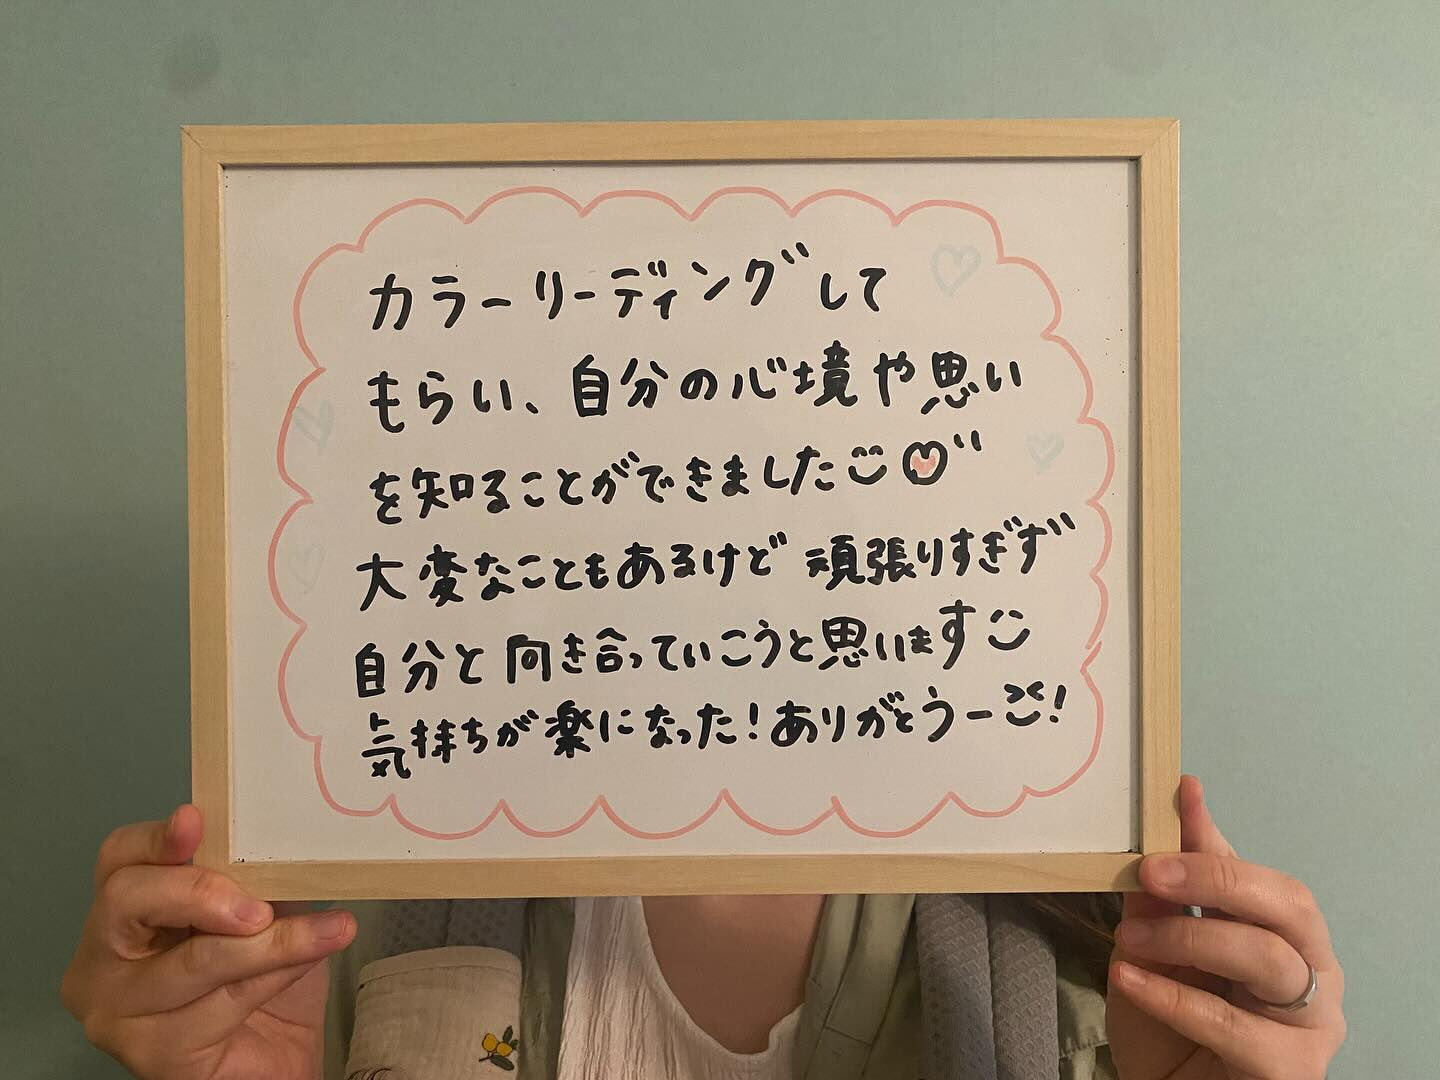 カラーリーディングして
もらい、自分の心境や思い
を知ることができました
大変なこともあるけど 頑張りすぎず
自分と向き合っていこうと思います
気持ちが楽になった!ありがとうー!